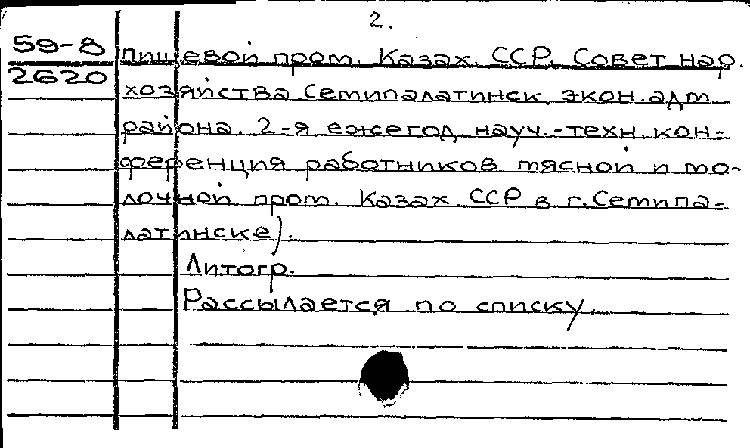 2.
59-8
2620
пищевой пром. Казах. ССР. Совет нар.
хозяйства Семипалатинск. экон. адм.
района. 2-я ежегод. науч.-техн. кон-
ференция работников мясной и мо-
лочной пром. Казах. ССР в г. Семипа-
латинске).
Литогр.
Рассылается по списку.